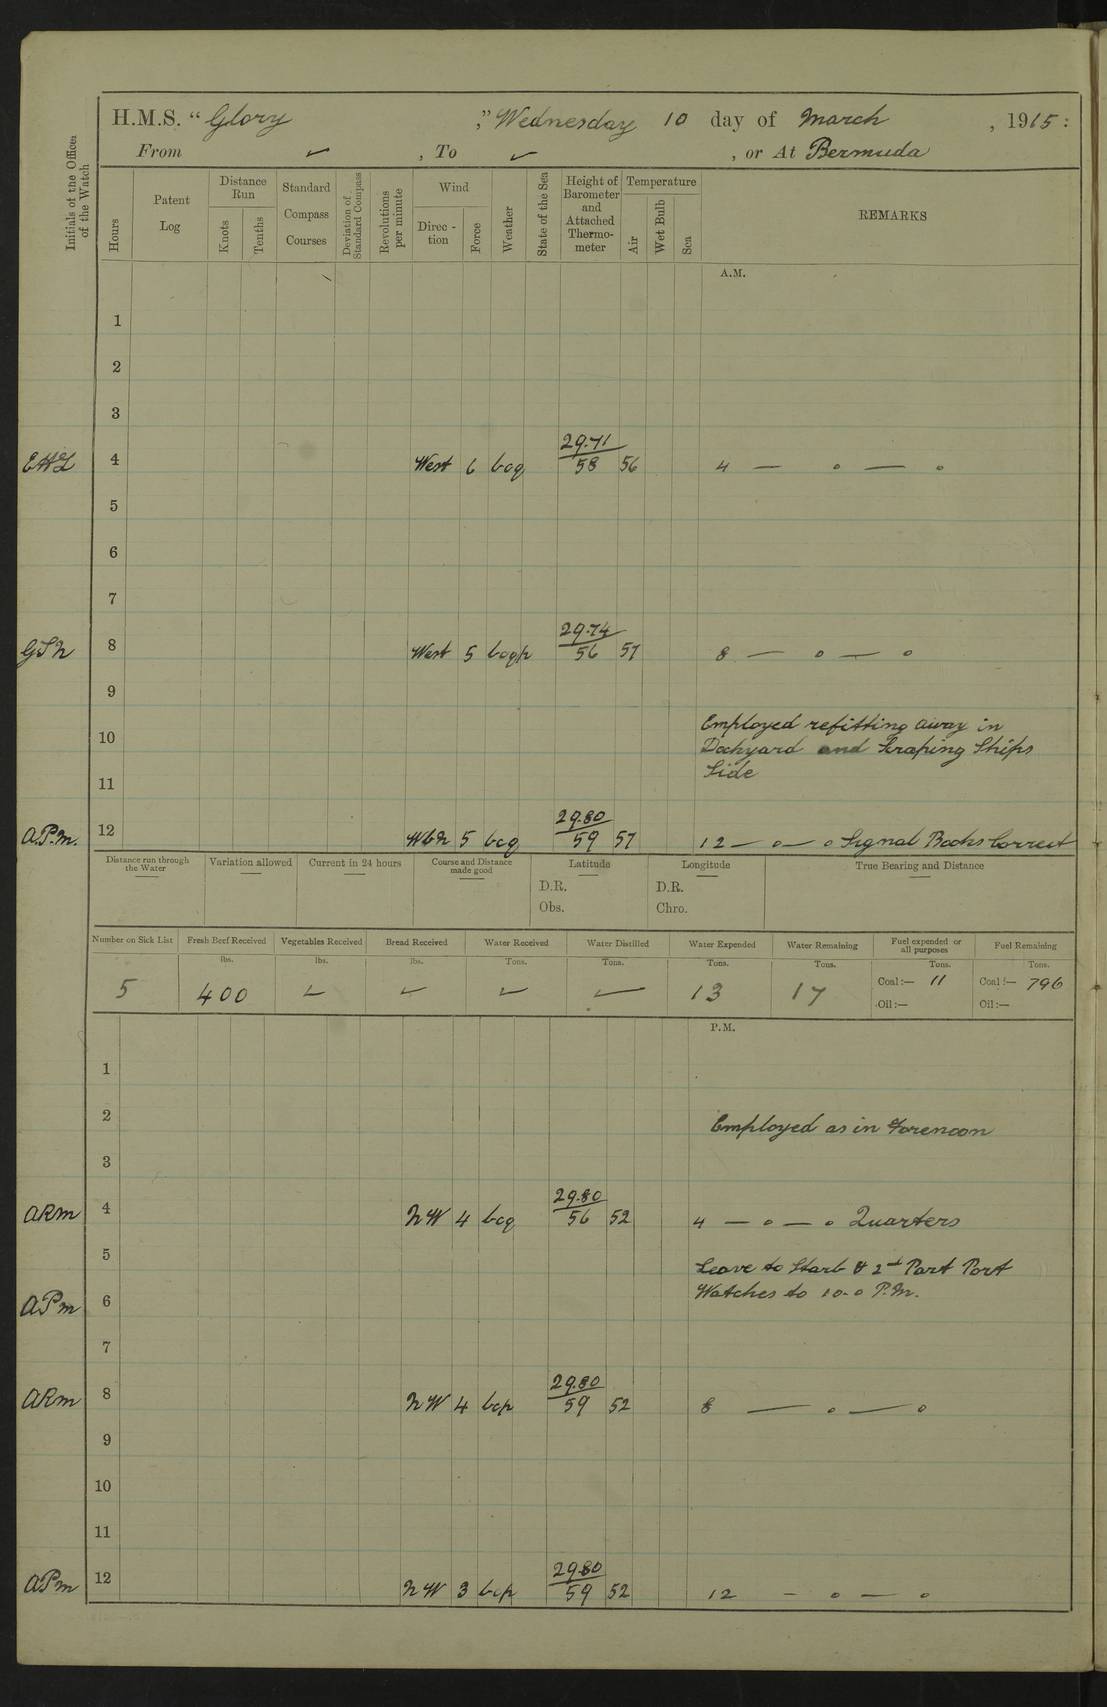 H.M.S. “ Glory ,” Wednesday 10 day of March , 1915 :
From ✓ , To ✓ , or At Bermuda
Initials of the Officer of the Watch
Hours
Patent Log
Distance Run
Knots
Tenths
Standard Compass Courses
Deviation of Standard Compass
Revolutions per minute
Wind
Direc-tion
Force
Weather
State of the Sea
Height of Barometer and Attached Thermo-meter
Temperature
Air
Wet Bulb
Sea
REMARKS
A.M.
1
2
3
29.71
4 West 6 bcq 58 56 4 — o — o
5
6
7
29.74
8 West 5 bcqp 56 57 8 — o — o
9
Employed refitting away in
10 Dockyard and Scraping Ships
11 Side
29.80
A.P.m. 12 WbN 5 bcq 59 57 12 — o — o Signal Books Correct
Distance run through the Water
Variation allowed
Current in 24 hours
Course and Distance made good
Latitude
D.R.
Obs.
Longitude
D.R.
Chro.
True Bearing and Distance
Number on Sick List
5
Fresh Beef Received
lbs.
400
Vegetables Received
lbs.
✓
Bread Received
lbs.
✓
Water Received
Tons.
✓
Water Distilled
Tons.
✓
Water Expended
Tons.
13
Water Remaining
Tons.
17
Fuel expended or all purposes
Tons.
Coal :— 11
Oil :—
Fuel Remaining
Tons.
Coal :— 796
Oil :—
P.M.
1
2 Employed as in Forenoon
3
29.80
ARm 4 NW 4 bcq 56 52 4 — o — o Quarters
5 Leave to Starb & 2nd Part Port
APm 6 Watches to 10-0 P.M.
7
29.80
ARm 8 NW 4 bcp 59 52 8 — o — o
9
10
11
29.80
APm 12 NW 3 bcp 59 52 12 — o — o